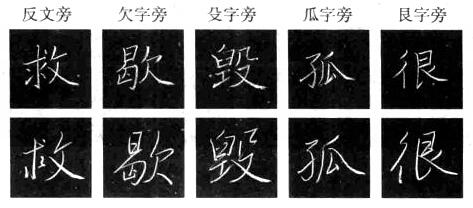 反文旁 欠字旁 殳字旁 瓜字旁 艮字旁
救 歇 毁 孤 很
救 歇 毁 孤 很